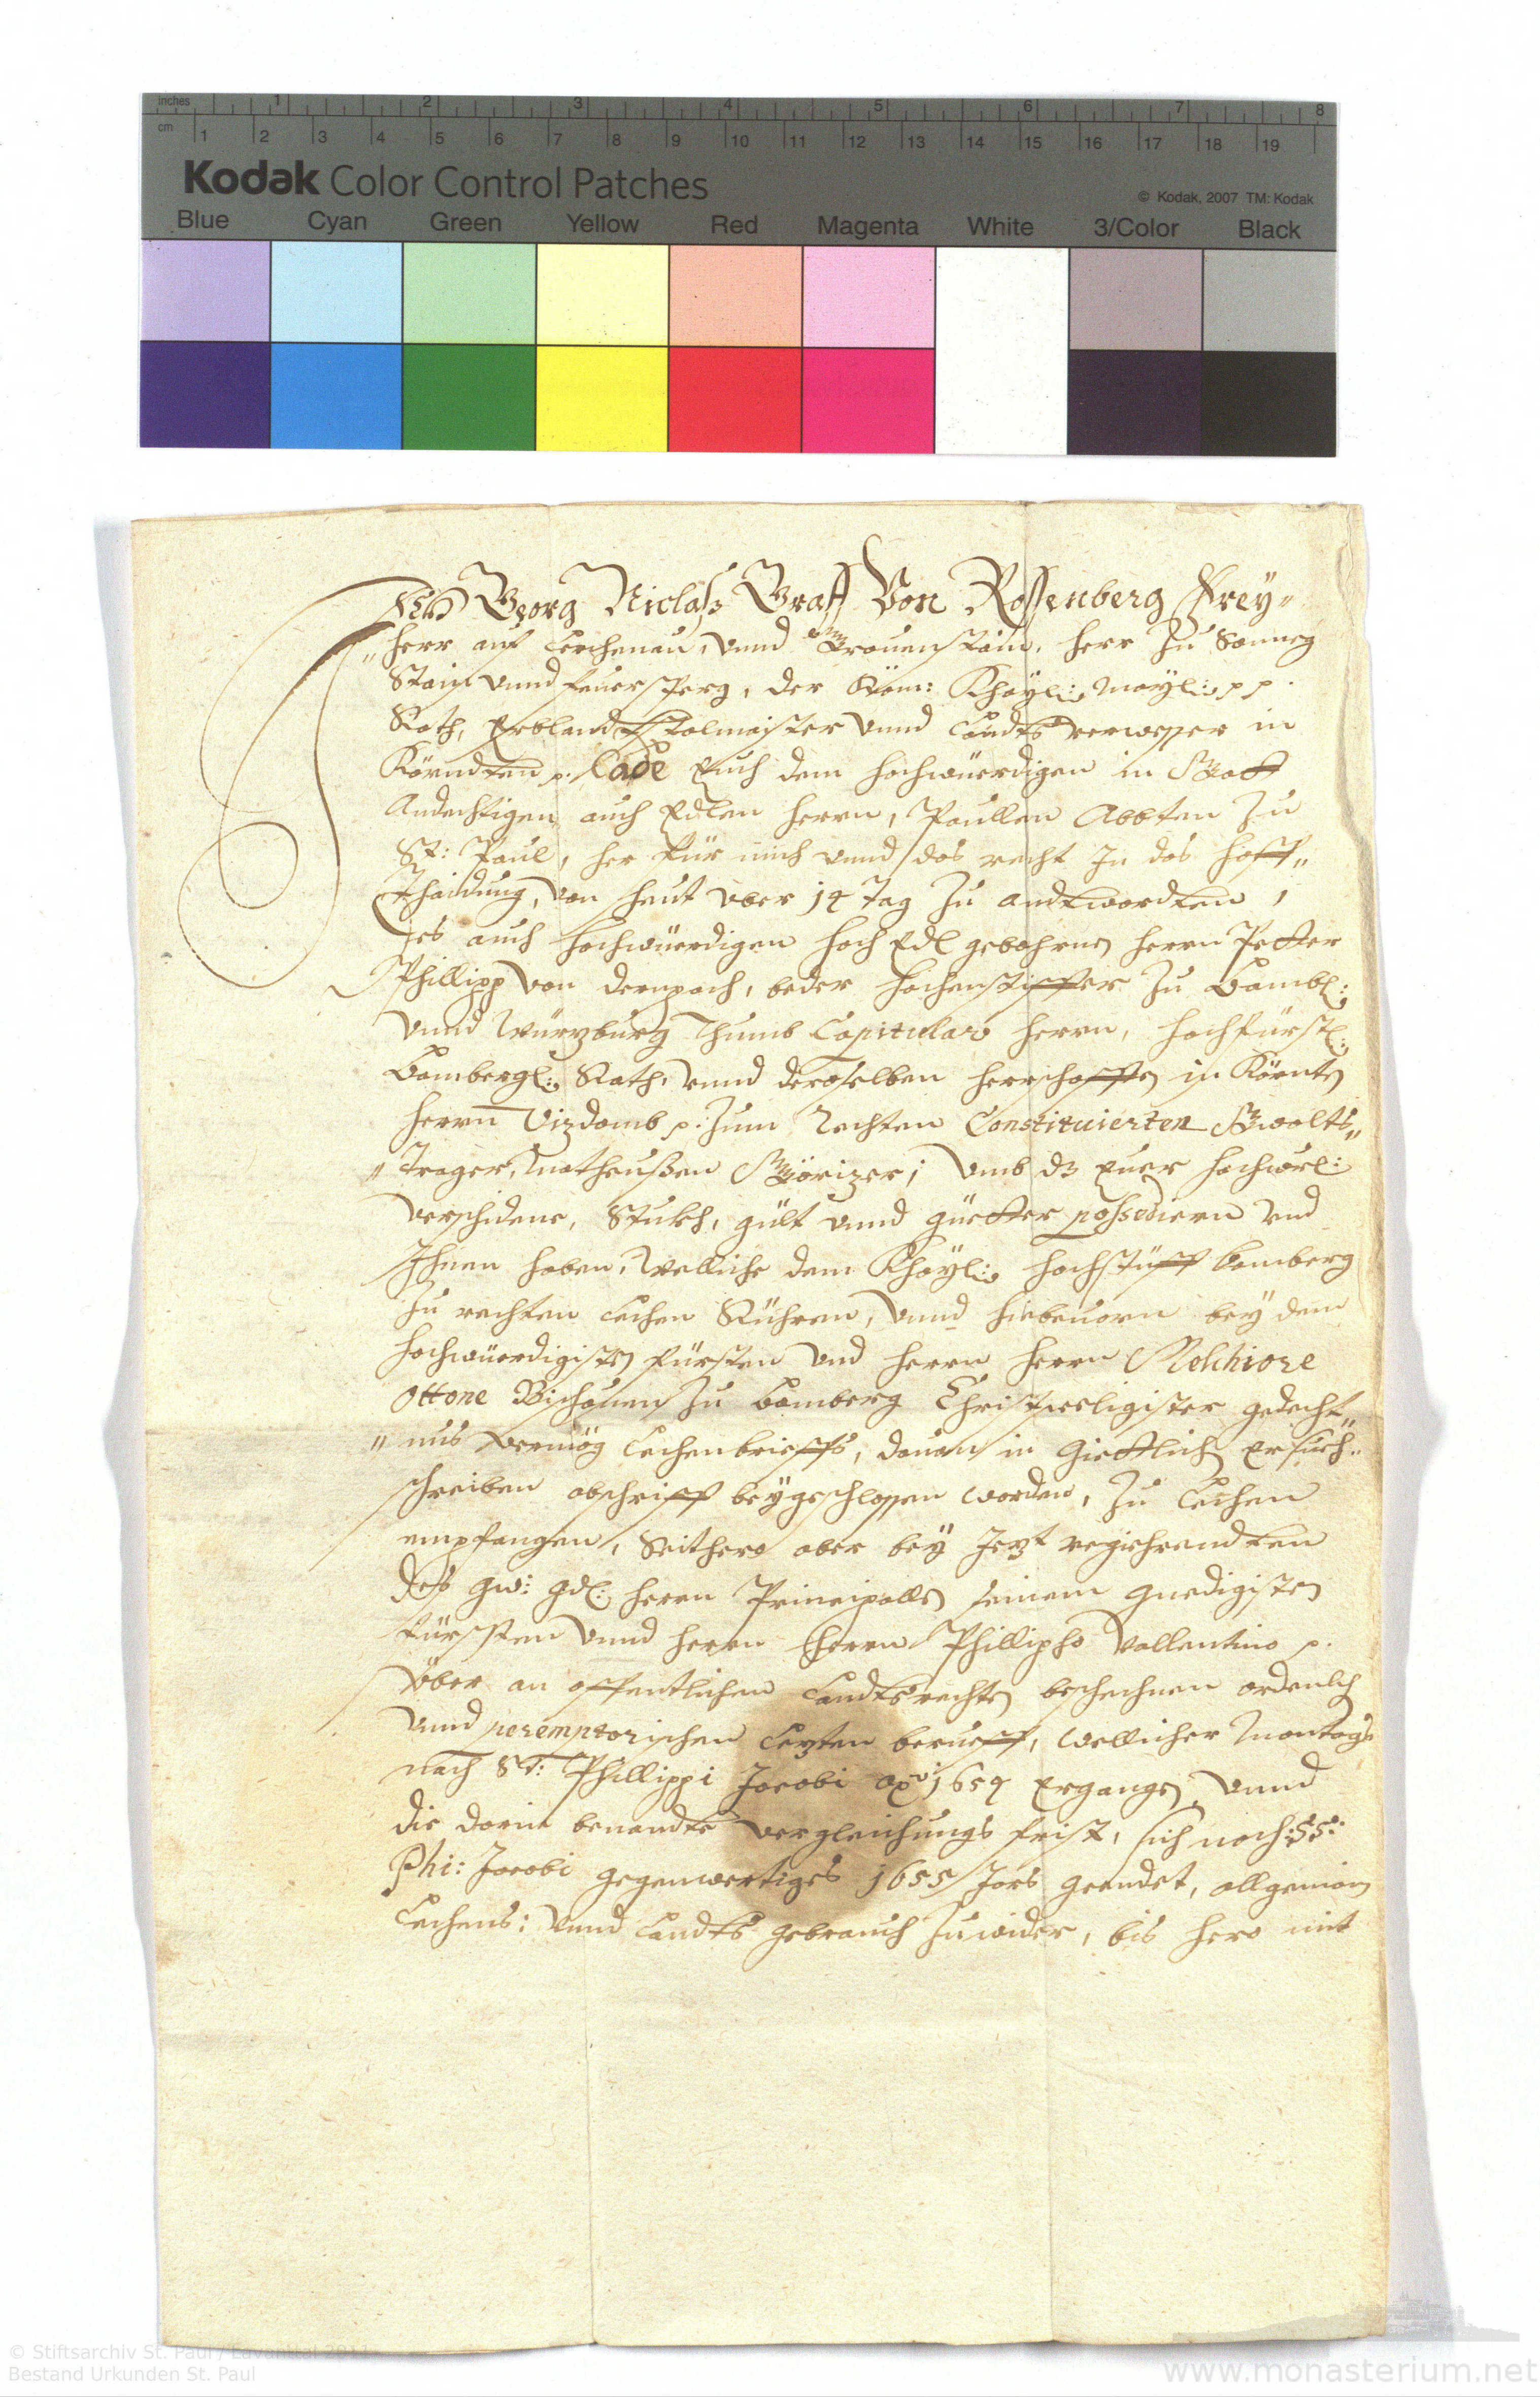 inches 1 2 3 4 5 6 7 8
cm 1 2 3 4 5 6 7 8 9 10 11 12 13 14 15 16 17 18 19
Kodak Color Control Patches
© Kodak, 2007 TM: Kodak
Blue Cyan Green Yellow Red Magenta White 3/Color Black
Ich Georg Niclaß Graff Von Rossenberg Frey„
„herr auf Lerchenau, vnnd Grauenstain, herr Zu Sonneg
Stain vnnd feuersperg, der Röm: Khayl: Mayl: p p.
Rath, Erbland Stalmaister vnnd Landts verwesser in
Kärndten p. Lade Euch dem hochwüerdigen in Gott
Andechtigen auch Edlen herrn, Paullen Abbten Zu
St: Paul, her für mich vnnd das recht In das hoff„
Thaidung, von heut vber 14 Tag Zu andtwordten,
des auch hochwüerdigen hoch Edl gebohrnen herrn Petter
Phillipp von dernpach, beder hochenstiffter Zu Bambl:
vnnd Würzburg Thumb Capitular herrn, hochfürstl:
Bambergl: Rath, vnnd deroselben herrschafften in Kärnten
herrn Vizdomb p. Zum rechten Constituierten Gwalts„
„Trager, Matheußen Görizer; Vmb dz Euer hochwürl:
verschidene, Stukh, gült vnnd güetter possediern vnd
Ihnen haben, Welliche dem Khayl: hochstüfft bamberg
Zu rechten Lechen Rühren, Vnnd hiebeuorn bey dem
hochwüerdigisten fürsten vnd herrn herrn Melchiore
Ottone Bischouen Zu Bamberg Christseeligister gedecht„
„nus vermög Lechenbrieffs, dauon in Giettlich Ersuch„
schreiben abschrifft beygeschlossen worden, Zu Lechen
empfangen, Seithero aber bey Jezt regiehrendten
deß gw: gdl: herrn Principallen seinem gnedigisten
fürssten vnnd herrn herrn Phillipho Vallentino p.
Über an offentlichen Landtsrechten beschechnen ordenlich
vnnd peremptorischen Lezten berueff, wellicher Montags
nach St: Phillippi Jacobi 1654 Ergangen, vnnd
die darin benandte vergleichungs frist, sich nach: SS:
Phi: Jacobi gegenwertiges 1655 Jars geendet, allgemain
Lechens: vnnd Landts gebrauch Zuwider, bis hero nit
© Stiftsarchiv St. Paul / Lavanttal 2011
Bestand Urkunden St. Paul
www.monasterium.net